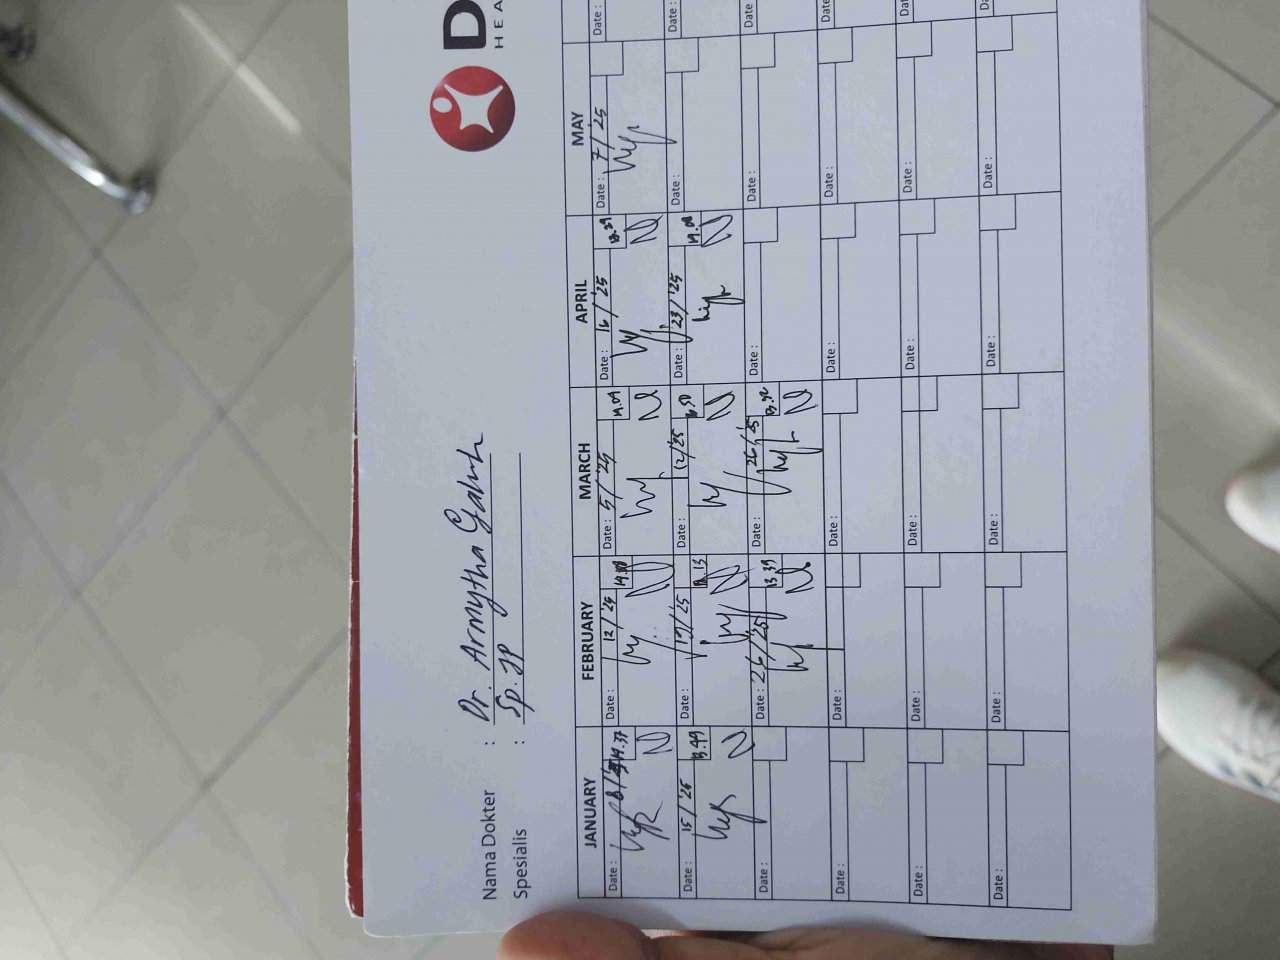 D
HEA
Nama Dokter : Dr. Armytha
Spesialis : Sp. JP
JANUARY FEBRUARY MARCH APRIL MAY
Date : 8/ 14.37 Date : 12/'25 Date : 5/'25 14.09 Date : 16/'25 13.39 Date : 7/25 Date :
Date : 15/'25 13.49 Date : 19/'25 Date : 12/'25 Date : 23/'25 14.08 Date : Date :
Date : Date : 26/'25 13.39 Date : 26/'25 Date : Date : Date :
Date : Date : Date : Date : Date : Date :
Date : Date : Date : Date : Date : Da
Date : Date : Date : Date : Date : Da